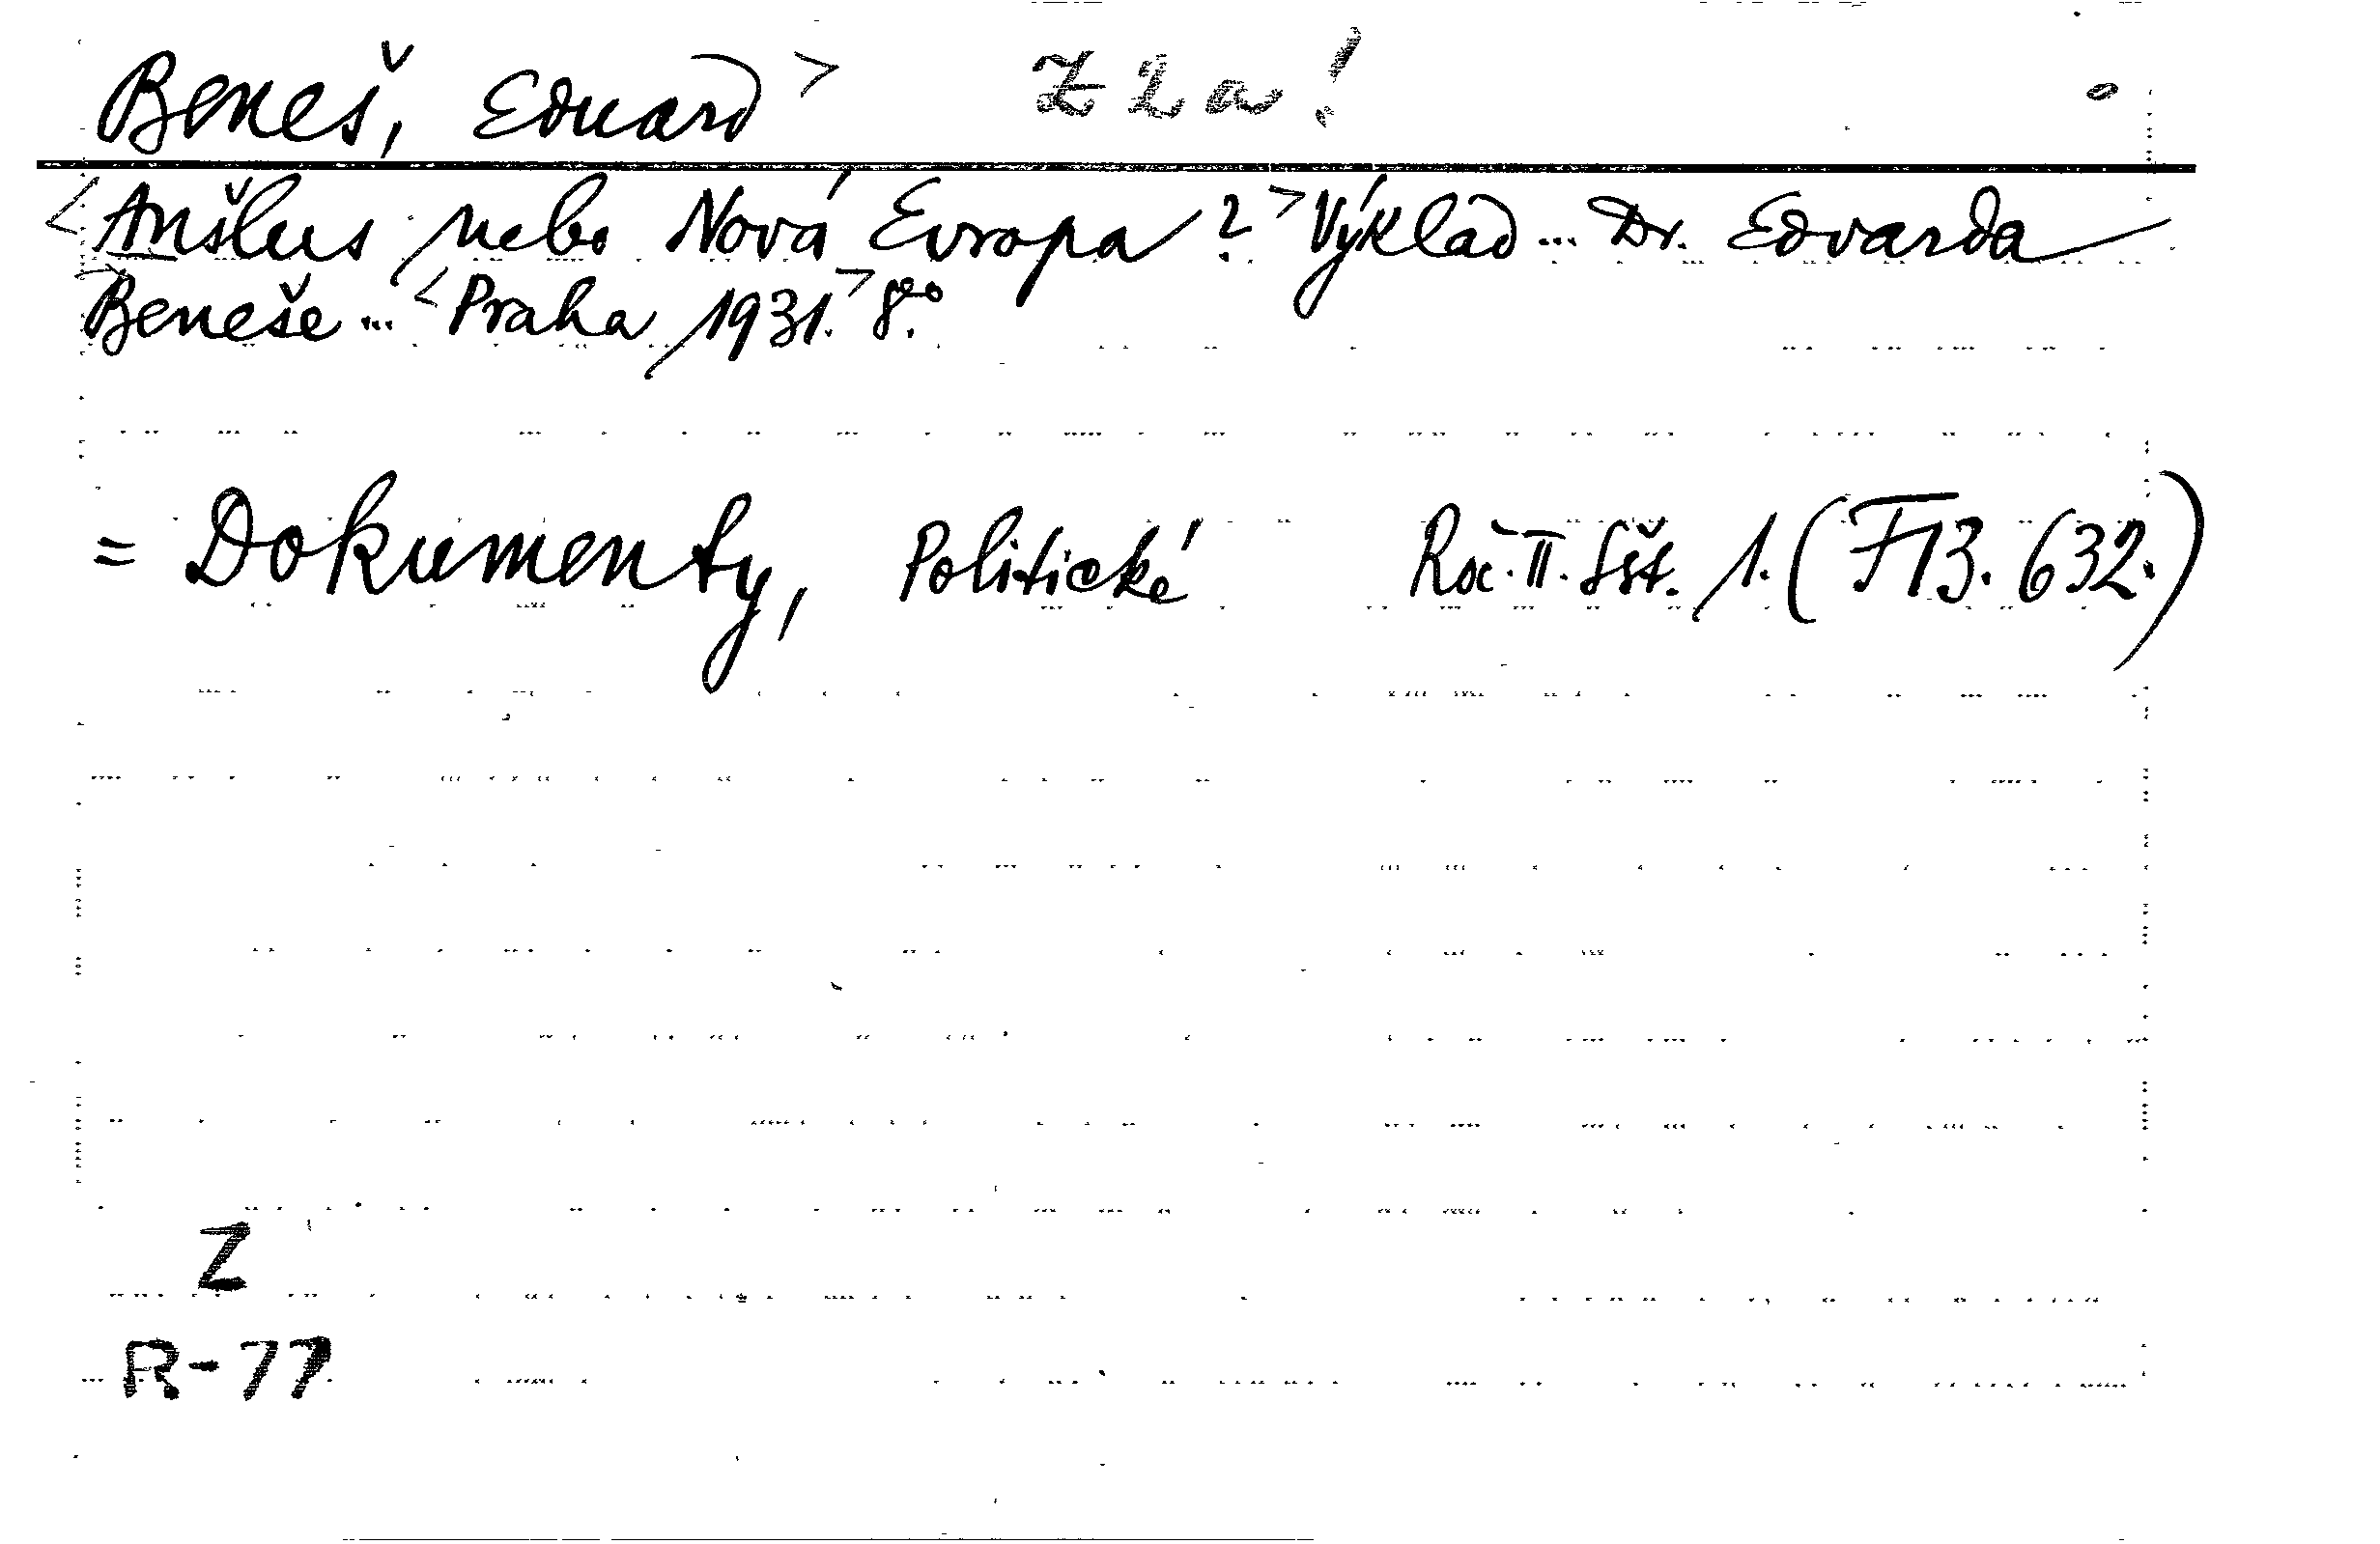 Beneš, Eduard > Z 2 a!
<Anšlus nebo Nová Evropa?> Výklad... Dr. Edvarda
Beneše... <Praha 1931.> 8°.
= Dokumenty, Politické Roč. II. Sšt. 1. (F 13.632.)
Z
R-77